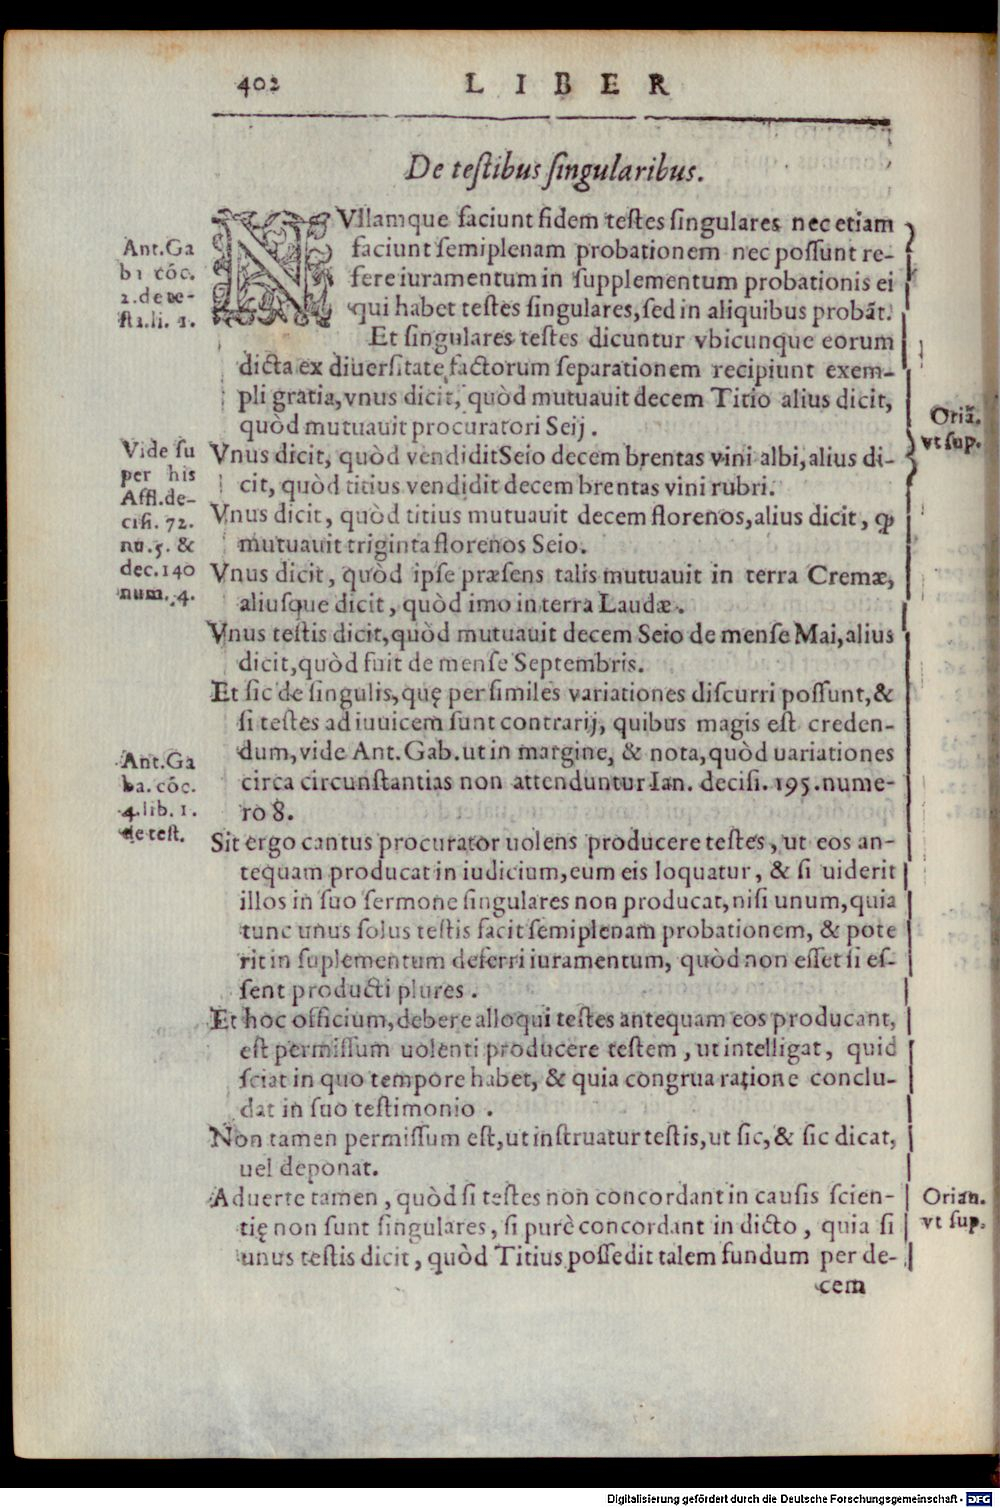 402 LIBER
De testibus singularibus.
NVllamque faciunt fidem testes singulares nec etiam
faciunt semiplenam probationem nec possunt re-
fere iuramentum in supplementum probationis ei
qui habet testes singulares, sed in aliquibus probãt.
Et singulares testes dicuntur vbicunque eorum
dicta ex diuersitate factorum separationem recipiunt exem-
pli gratia, vnus dicit, quòd mutuauit decem Titio alius dicit,
quòd mutuauit procuratori Seij.
Vnus dicit, quòd vendidit Seio decem brentas vini albi, alius di-
cit, quòd titius vendidit decem brentas vini rubri.
Vnus dicit, quòd titius mutuauit decem florenos, alius dicit, ꝙ
mutuauit triginta florenos Seio.
Vnus dicit, quòd ipse præsens talis mutuauit in terra Cremæ,
aliusque dicit, quòd imo in terra Laudæ.
Vnus testis dicit, quòd mutuauit decem Seio de mense Mai, alius
dicit, quòd fuit de mense Septembris.
Et sic de singulis, quę per similes variationes discurri possunt, &
si testes ad iuuicem sunt contrarij, quibus magis est creden-
dum, vide Ant. Gab. ut in margine, & nota, quòd uariationes
circa circunstantias non attenduntur Ian. decisi. 195. nume-
ro 8.
Sit ergo cantus procurator uolens producere testes, ut eos an-
tequam producat in iudicium, eum eis loquatur, & si uiderit
illos in suo sermone singulares non producat, nisi unum, quia
tunc unus solus testis facit semiplenam probationem, & pote
rit in suplementum deferri iuramentum, quòd non esset si es-
sent producti plures.
Et hoc officium, debere alloqui testes antequam eos producant,
est permissum uolenti producere testem, ut intelligat, quid
sciat in quo tempore habet, & quia congrua ratione conclu-
dat in suo testimonio.
Non tamen permissum est, ut instruatur testis, ut sic, & sic dicat,
uel deponat.
Aduerte tamen, quòd si testes non concordant in causis scien-
tię non sunt singulares, si purè concordant in dicto, quia si
unus testis dicit, quòd Titius possedit talem fundum per de-
cem
Ant. Ga
b1 cõc.
2. de te-
sti. li. 1.
Vide su
per his
Affl. de-
cisi. 72.
nu. 5. &
dec. 140
num. 4.
Ant. Ga
ba. cõc.
4. lib. 1.
de test.
Oriã.
vt sup.
Orian.
vt sup.
Digitalisierung gefördert durch die Deutsche Forschungsgemeinschaft - DFG